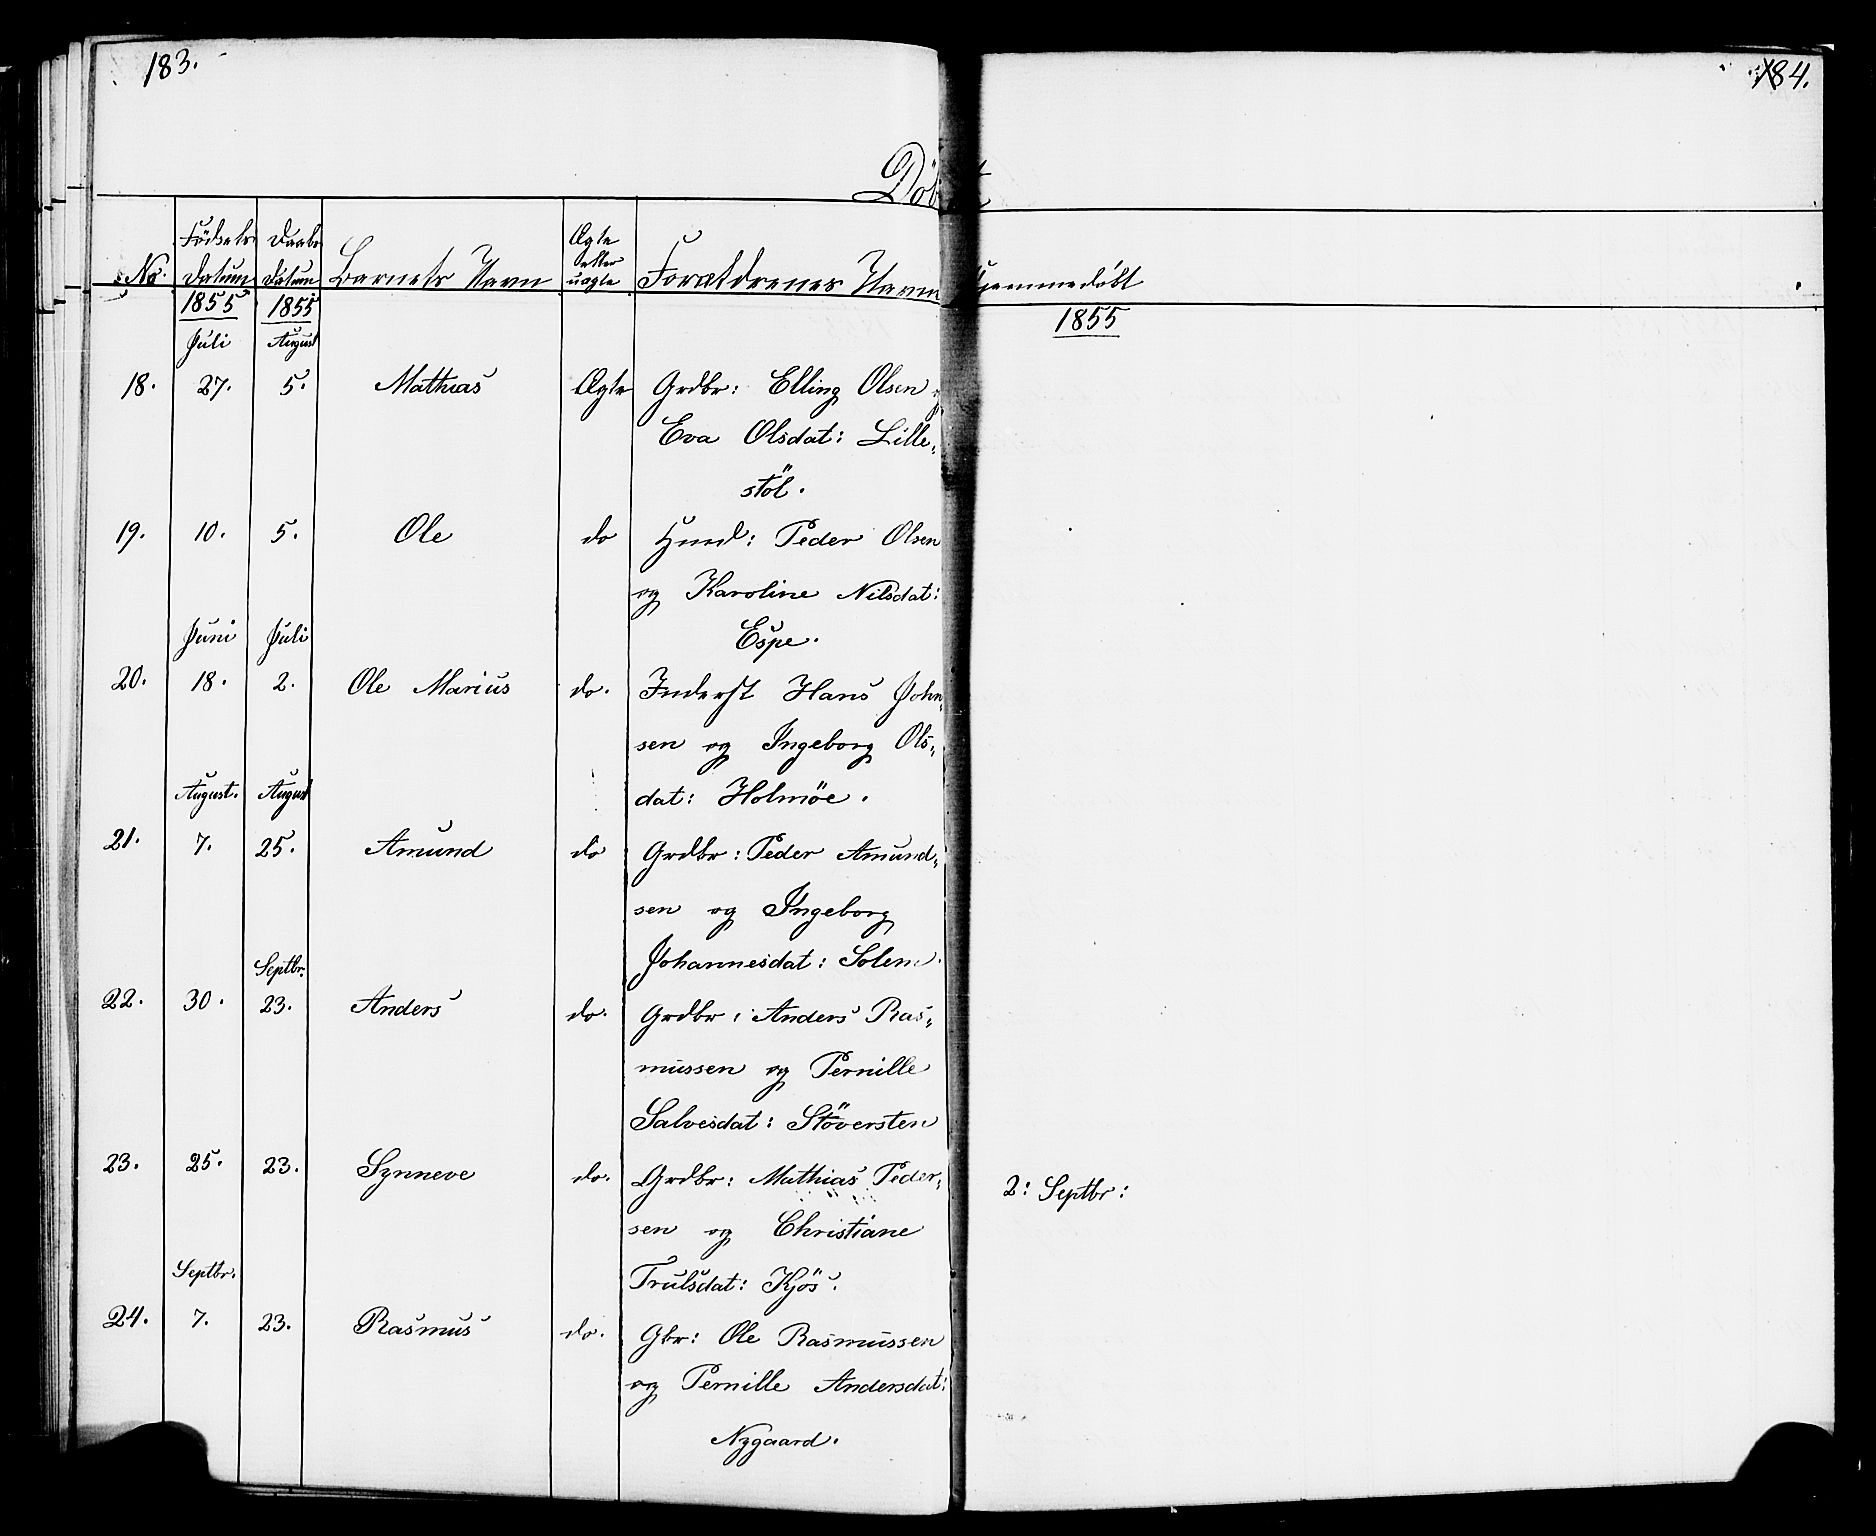 183.
184.
Döbt
No. Födsels Datum Daabs Datum Barnets Navn Ægte eller uægte Forældrenes Navn Hjemmedöbt
1855 1855 1855
Juli August
18. 27. 5. Mathias Ægte Grdbr: Elling Olsen og
Eva Olsdat: Lille-
stöl.
19. 10. 5. Ole do Husmd: Peder Olsen
og Karoline Nilsdat:
Juni Juli Espe.
20. 18. 2. Ole Marius do. Inderst Hans John-
sen og Ingeborg Ols-
August. August dat: Holmöe.
21. 7. 25. Amund do Grdbr: Peder Amund-
sen og Ingeborg
Septbr. Johannesdat: Solem.
22. 30. 23. Anders do. Grdbr: Anders Ras-
mussen og Pernille
Salvesdat: Stöversten
23. 25. 23. Synneve do. Grdbr: Mathias Peder- 2: Septbr:
sen og Christiane
Septbr. Trulsdat: Kjös.
24. 7. 23. Rasmus do. Gbr: Ole Rasmussen
og Pernille Andersdat:
Nygaard.